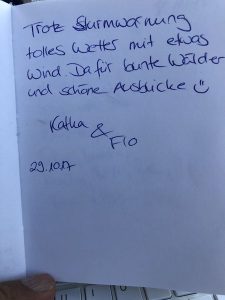 Trotz Sturmwarnung
tolles Wetter mit etwas
Wind. Dafür bunte Wälder
und schöne Ausblicke ☺
Katha
&
Flo
29.10.17